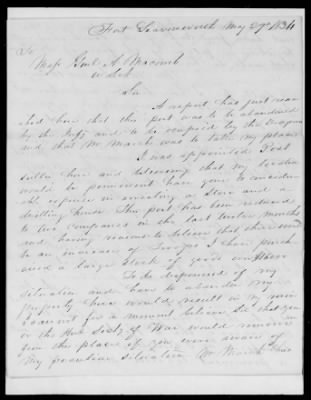 Fort Leavenworth May 29th 1834
To
Maj. Genl. A. Macomb
Sir
A report has just reac
hed here that this post was to be abandoned
by the Infy and to be occupied by the Dragoons
and that Mr March was to take my place
I was appointed Post
Sutler here and believing that my location
would be permanent have gone to consider
able expense in erecting a Store and a
dwelling house This post has been reduced
to two companies in the last twelve months
and having reasons to believe that there would
be an increase of Troops I have purch
ased a large stock of goods
To be dispossessed of my
situation and have to abandon my
property here would result in my ruin
I cannot for a moment believe Sir that you
or the Hon Secty of War would remove
give this place if you were aware of
my peculiar situation Mr March